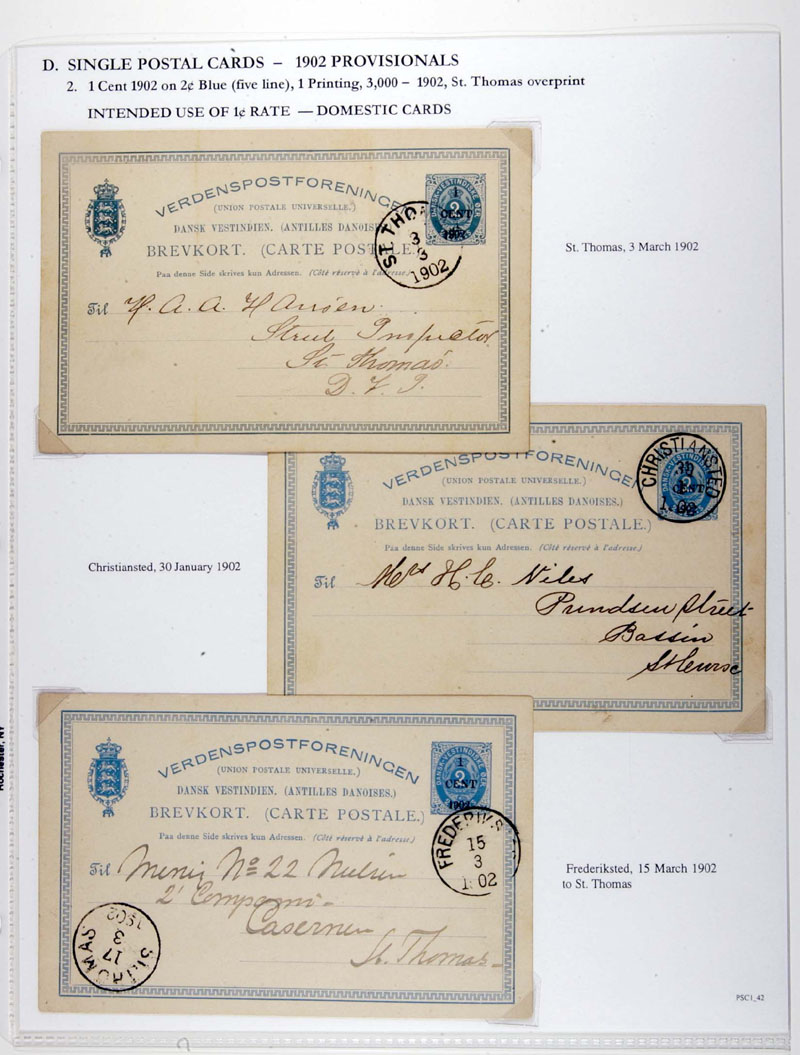 D. SINGLE POSTAL CARDS – 1902 PROVISIONALS
2. 1 Cent 1902 on 2¢ Blue (five line), 1 Printing, 3,000 – 1902, St. Thomas overprint
INTENDED USE OF 1¢ RATE — DOMESTIC CARDS
VERDENSPOSTFORENINGEN
(UNION POSTALE UNIVERSELLE.)
DANSK VESTINDIEN. (ANTILLES DANOISES
BREVKORT. (CARTE POSTALE.
Paa denne Side skrives kun Adressen. (Côté réservé à l'adresse.
1
CENT
1902
ST. THO
3
3
1902
Til H. A. A. Hansen.
Street Inspector
St Thomas.
D. V. I.
St. Thomas, 3 March 1902
VERDENSPOSTFORENINGEN
(UNION POSTALE UNIVERSELLE.)
DANSK VESTINDIEN. (ANTILLES DANOISES.)
BREVKORT. (CARTE POSTALE.)
Paa denne Side skrives kun Adressen. (Côté réservé à l'adresse.)
CHRISTIANSTED
30
CENT
1902
Til Mrs H. C. Niles
Prindsen Street
Bassin
St Croix
Christiansted, 30 January 1902
VERDENSPOSTFORENINGEN
(UNION POSTALE UNIVERSELLE.)
DANSK VESTINDIEN. (ANTILLES DANOISES.)
BREVKORT. (CARTE POSTALE.)
Paa denne Side skrives kun Adressen. (Côté réservé à l'adresse.)
DANSK-VESTINDISKE ØER
1
CENT
1902
FREDERIKS
15
3
1902
Til Menig No 22 Nielsen
2' Compagni-
Casernen
St. Thomas-
ST. THOMAS
17
3
1902
Frederiksted, 15 March 1902
to St. Thomas
PSC1_42
Rochester, NY